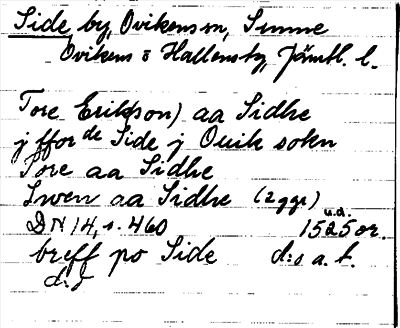 Side, by, Ovikens sn, Sunne
Ovikens o Hallens tg, Jämtl. l.
Tore Erik(son) aa Sidhe
j fford Side j Ouik sokn
Pore aa Sidhe
Swen aa Sidhe (2 ggr)
DN 14, s. 460 u.d. 1525 or.
breff po Side d:o a. t.
d:o